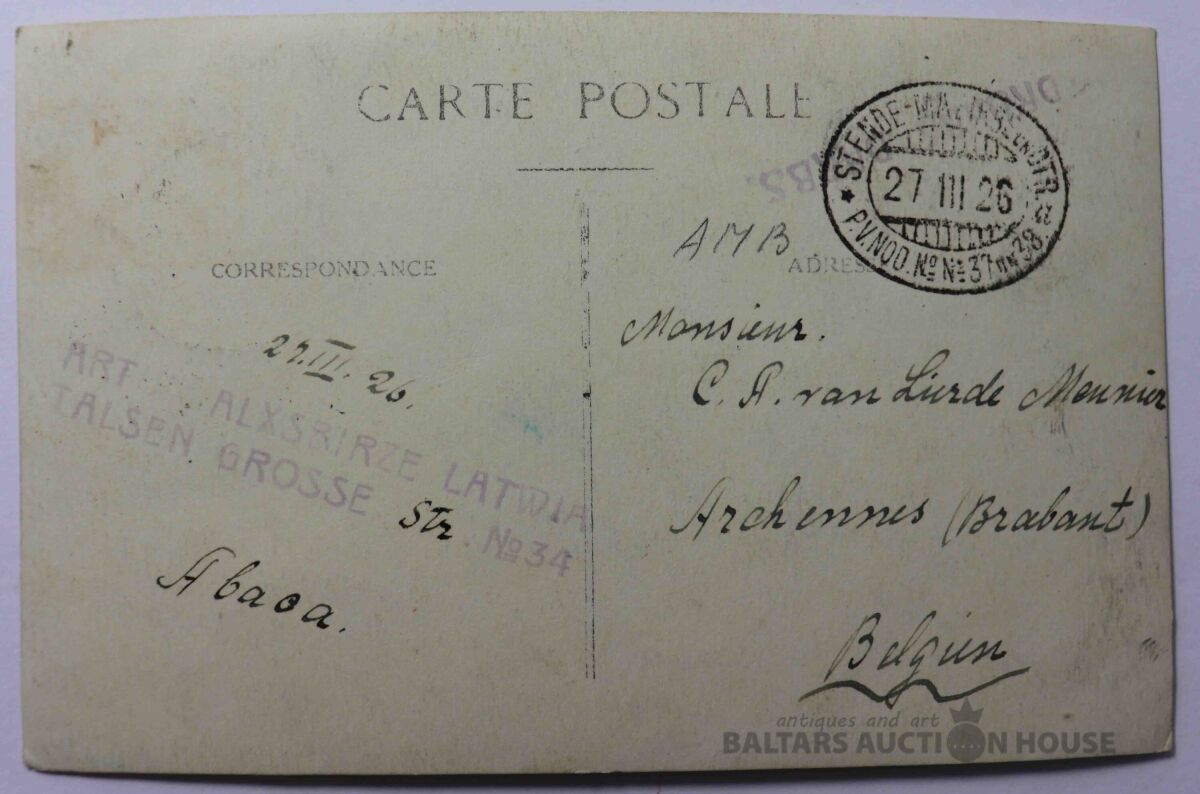 CARTE POSTALE
STENDE-MAZIRBE
27 III 26
P.V.NOD. № № 37 un 38
AMB
CORRESPONDANCE
ADRESSE
27.III.26.
ART. ALXSBIRZE LATWIA
TALSEN GROSSE Str. № 34
Abaca.
Monsieur.
C. A. van Lierde Meunier
Archennes (Brabant)
Belgien
antiques and art
BALTARS AUCTION HOUSE